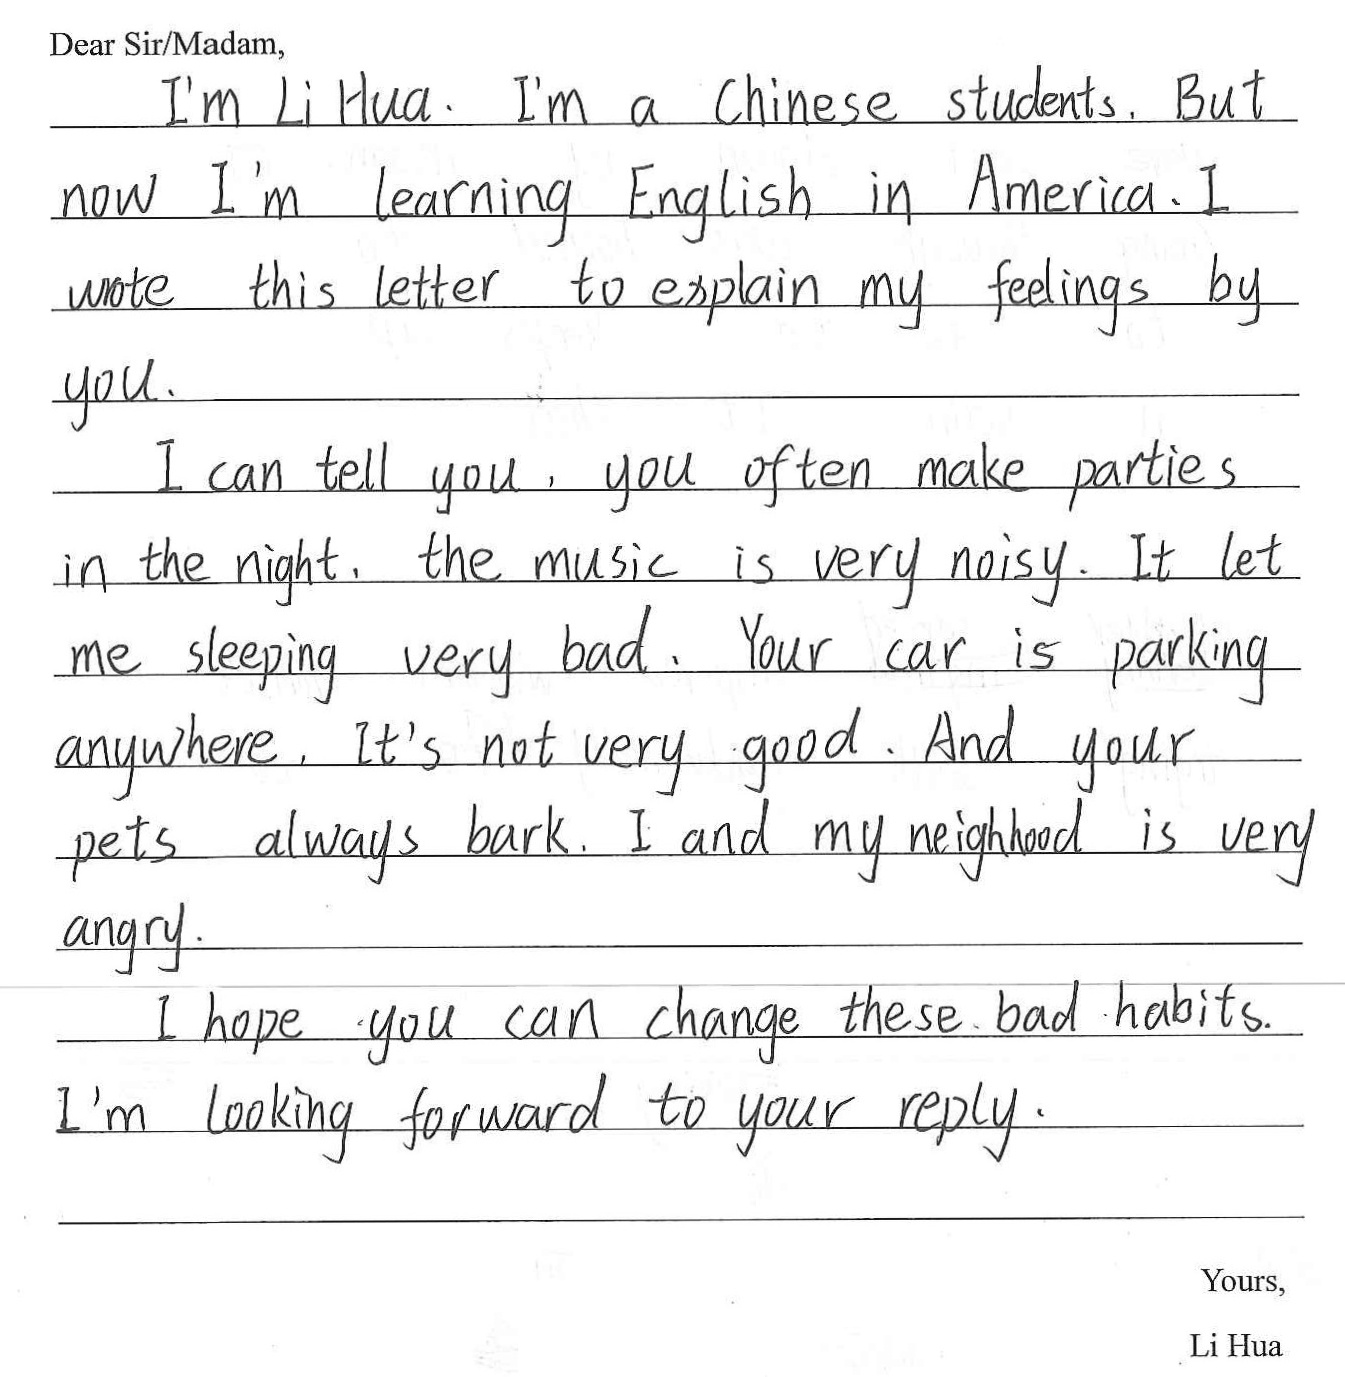 Dear Sir/Madam,
I'm Li Hua. I'm a Chinese students. But
now I'm learning English in America. I
wrote this letter to explain my feelings by
you.
I can tell you, you often make parties
in the night, the music is very noisy. It let
me sleeping very bad. Your car is parking
anywhere, It's not very good. And your
pets always bark. I and my neighhood is very
angry.
I hope you can change these bad habits.
I'm looking forward to your reply.
Yours,
Li Hua